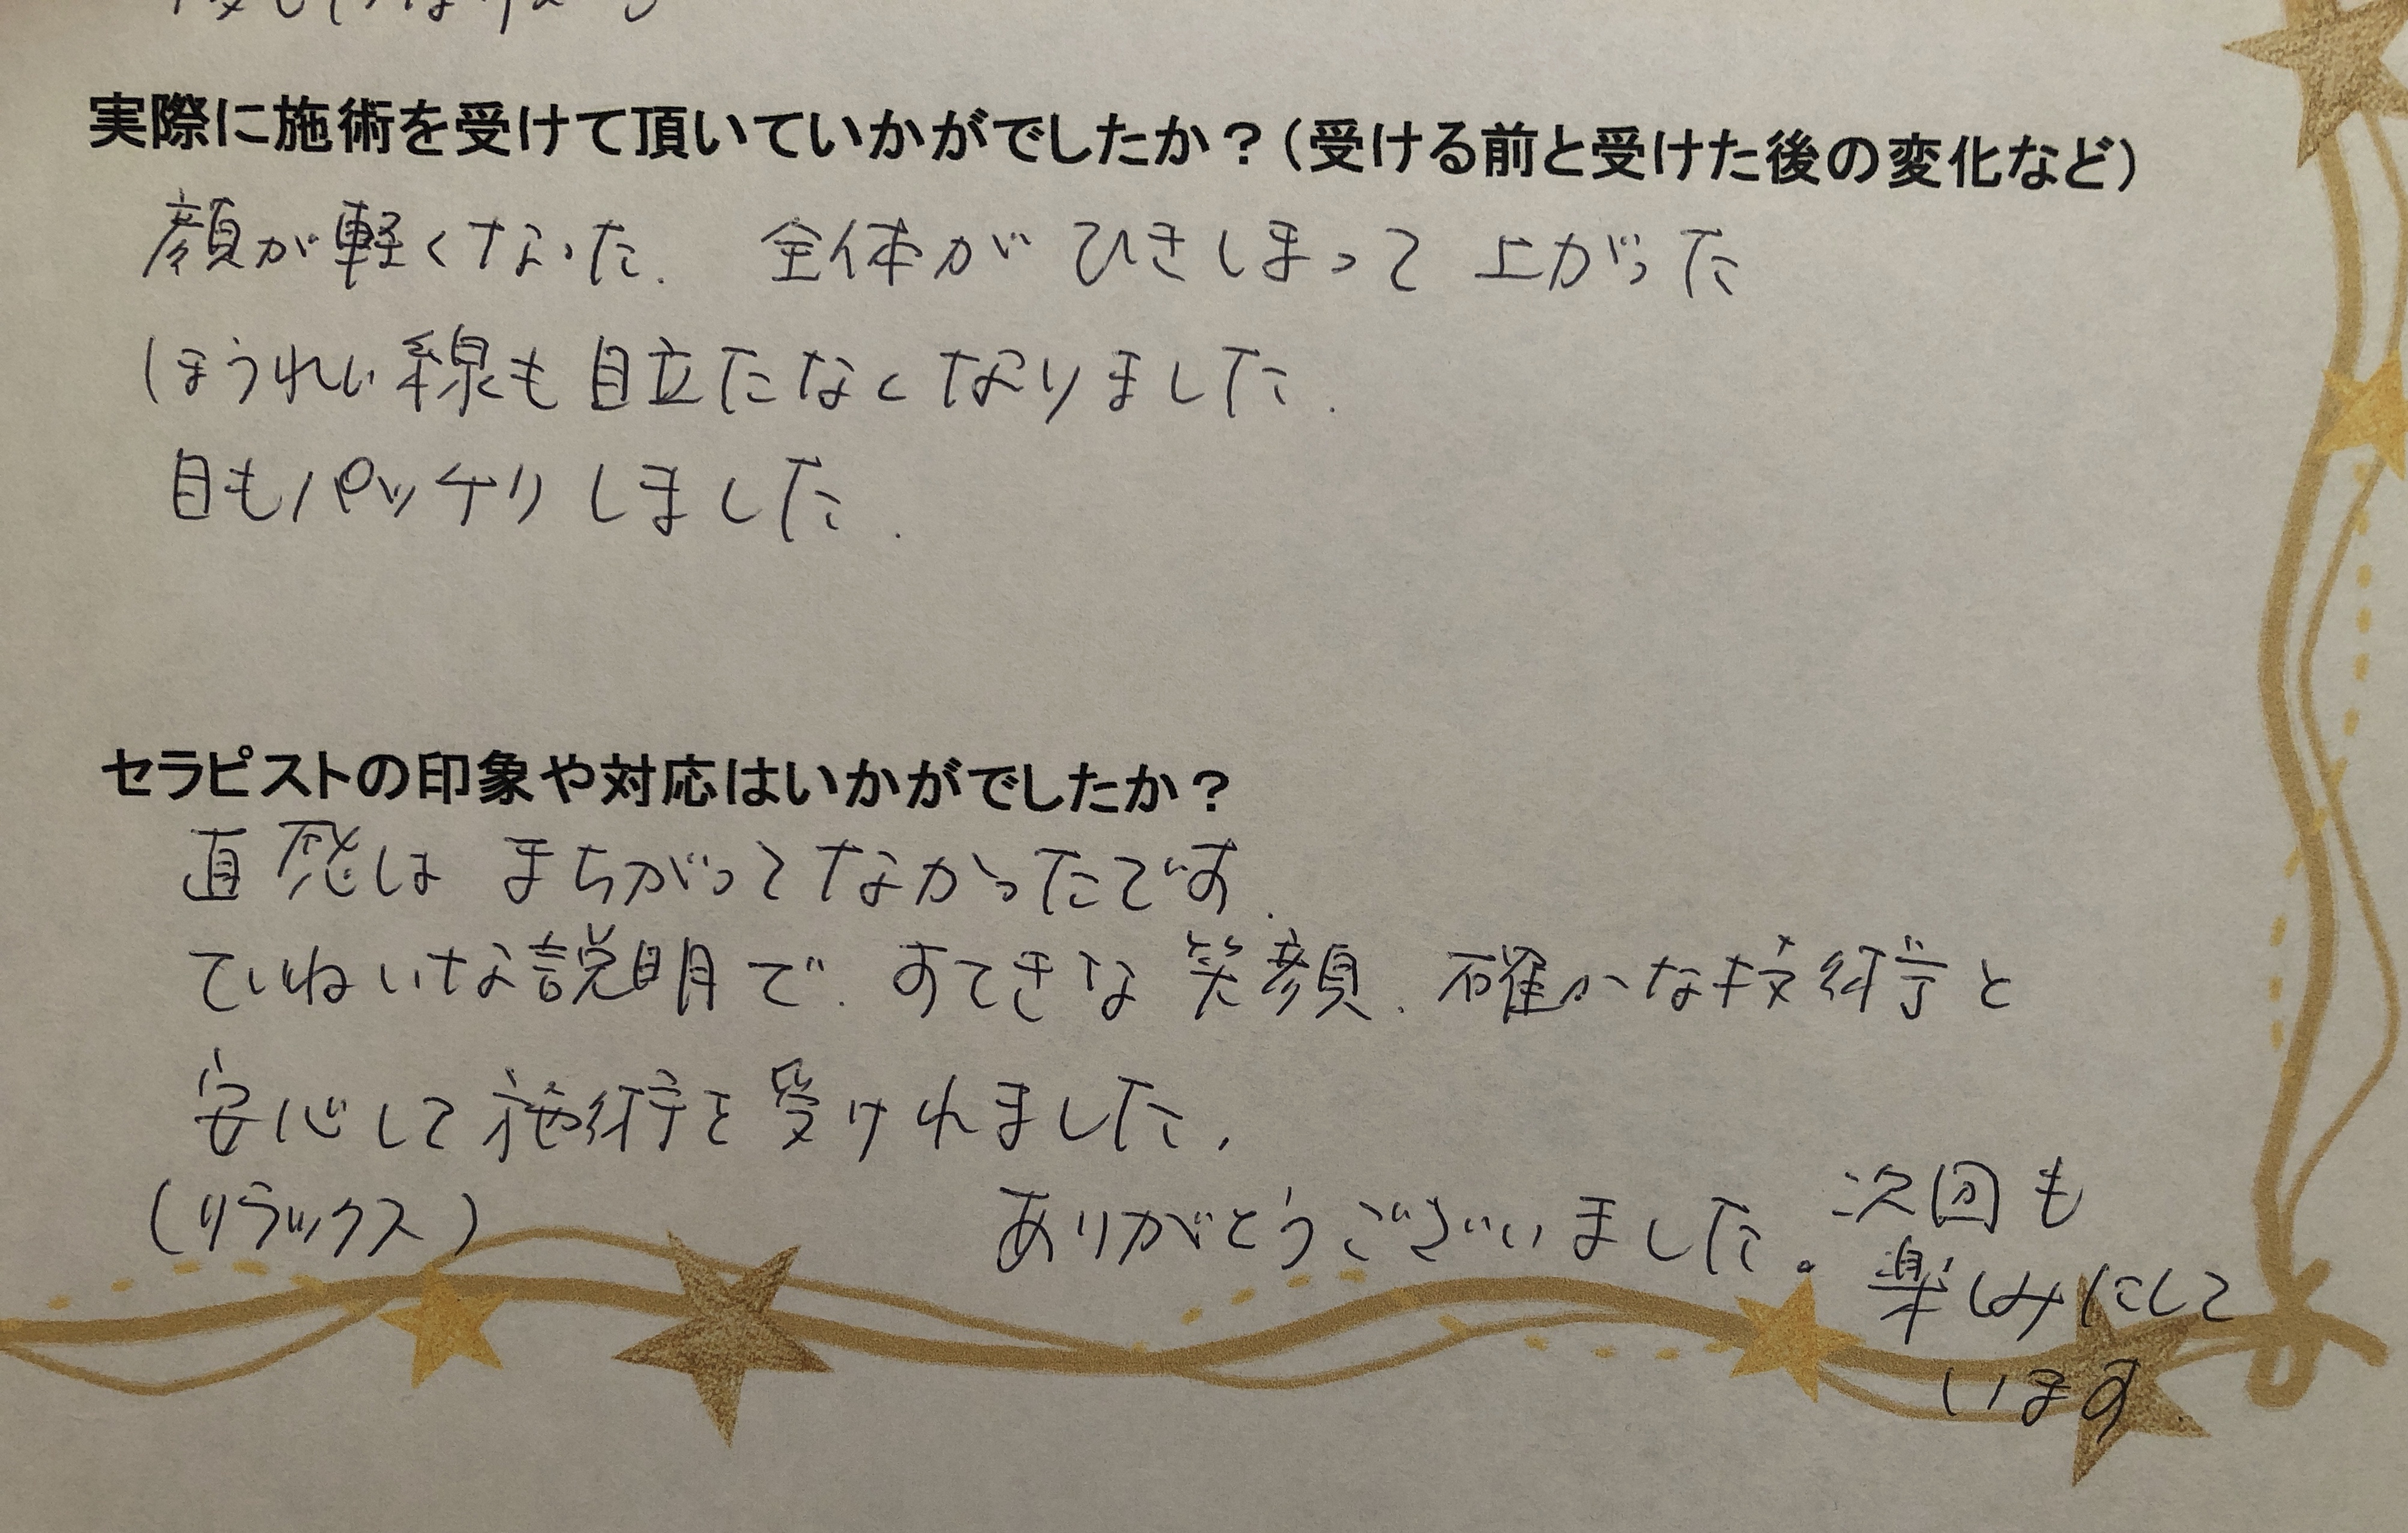 実際に施術を受けて頂いていかがでしたか？（受ける前と受けた後の変化など）
顔が軽くなった． 全体が ひきしまって 上がった
ほうれい線も目立たなくなりました．
目もパッチリしました．
セラピストの印象や対応はいかがでしたか？
直感は まちがってなかったです．
ていねいな説明で．すてきな笑顔．確かな技術と
安心して施術を受けれました．
（リラックス） ありがとうございました。次回も
楽しみにして
います